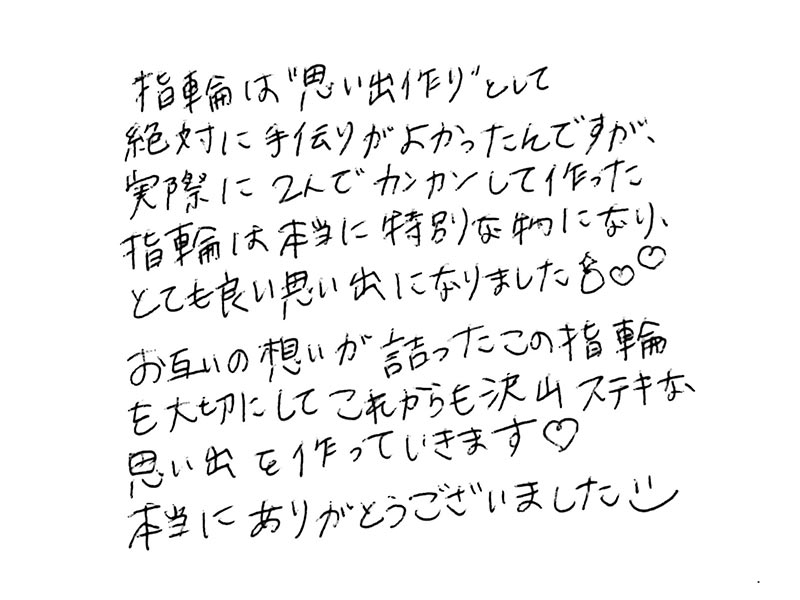 指輪は"思い出作り"として
絶対に手伝りがよかったんですが、
実際に2人でカンカンして作った
指輪は本当に特別な物になり、
とても良い思い出になりました♡♡
お互いの想いが詰ったこの指輪
を大切にしてこれからも沢山ステキな、
思い出を作っていきます♡
本当にありがとうございました